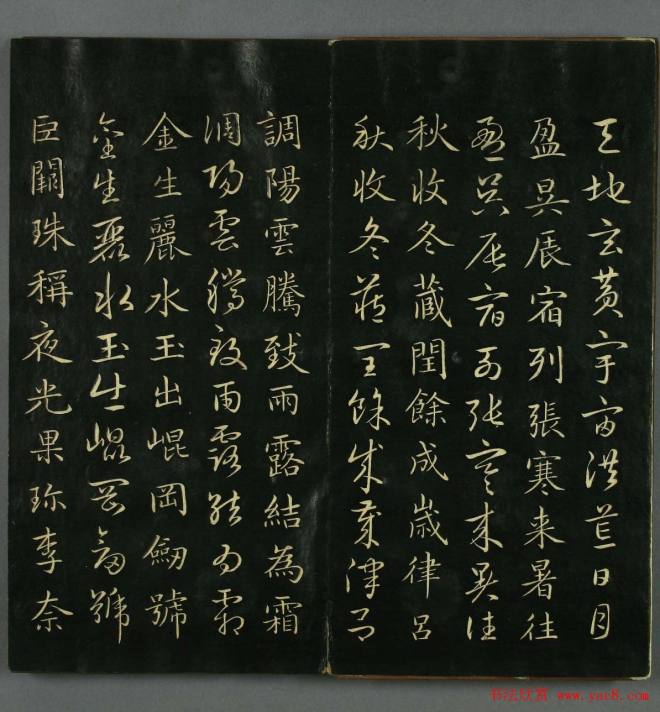 天地玄黃宇宙洪荒日月
盈昃辰宿列張寒来暑往
盈昃辰宿列張寒来暑往
秋收冬藏閏餘成歲律呂
秋收冬藏閏餘成歲律呂
調陽雲騰致雨露結為霜
調陽雲騰致雨露結為霜
金生麗水玉出崐岡劒號
金生麗水玉出崐岡劒號
巨闕珠稱夜光果珍李柰
书法欣赏 www.yac8.com